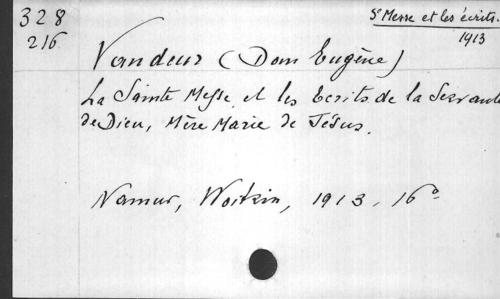 328
216
Ste Messe et les écrits.
1913
Vandeur (Dom Eugène)
La Sainte Messe et les Ecrits de la Servante
de Dieu, Mère Marie de Jésus.
Namur, 1913, 16º